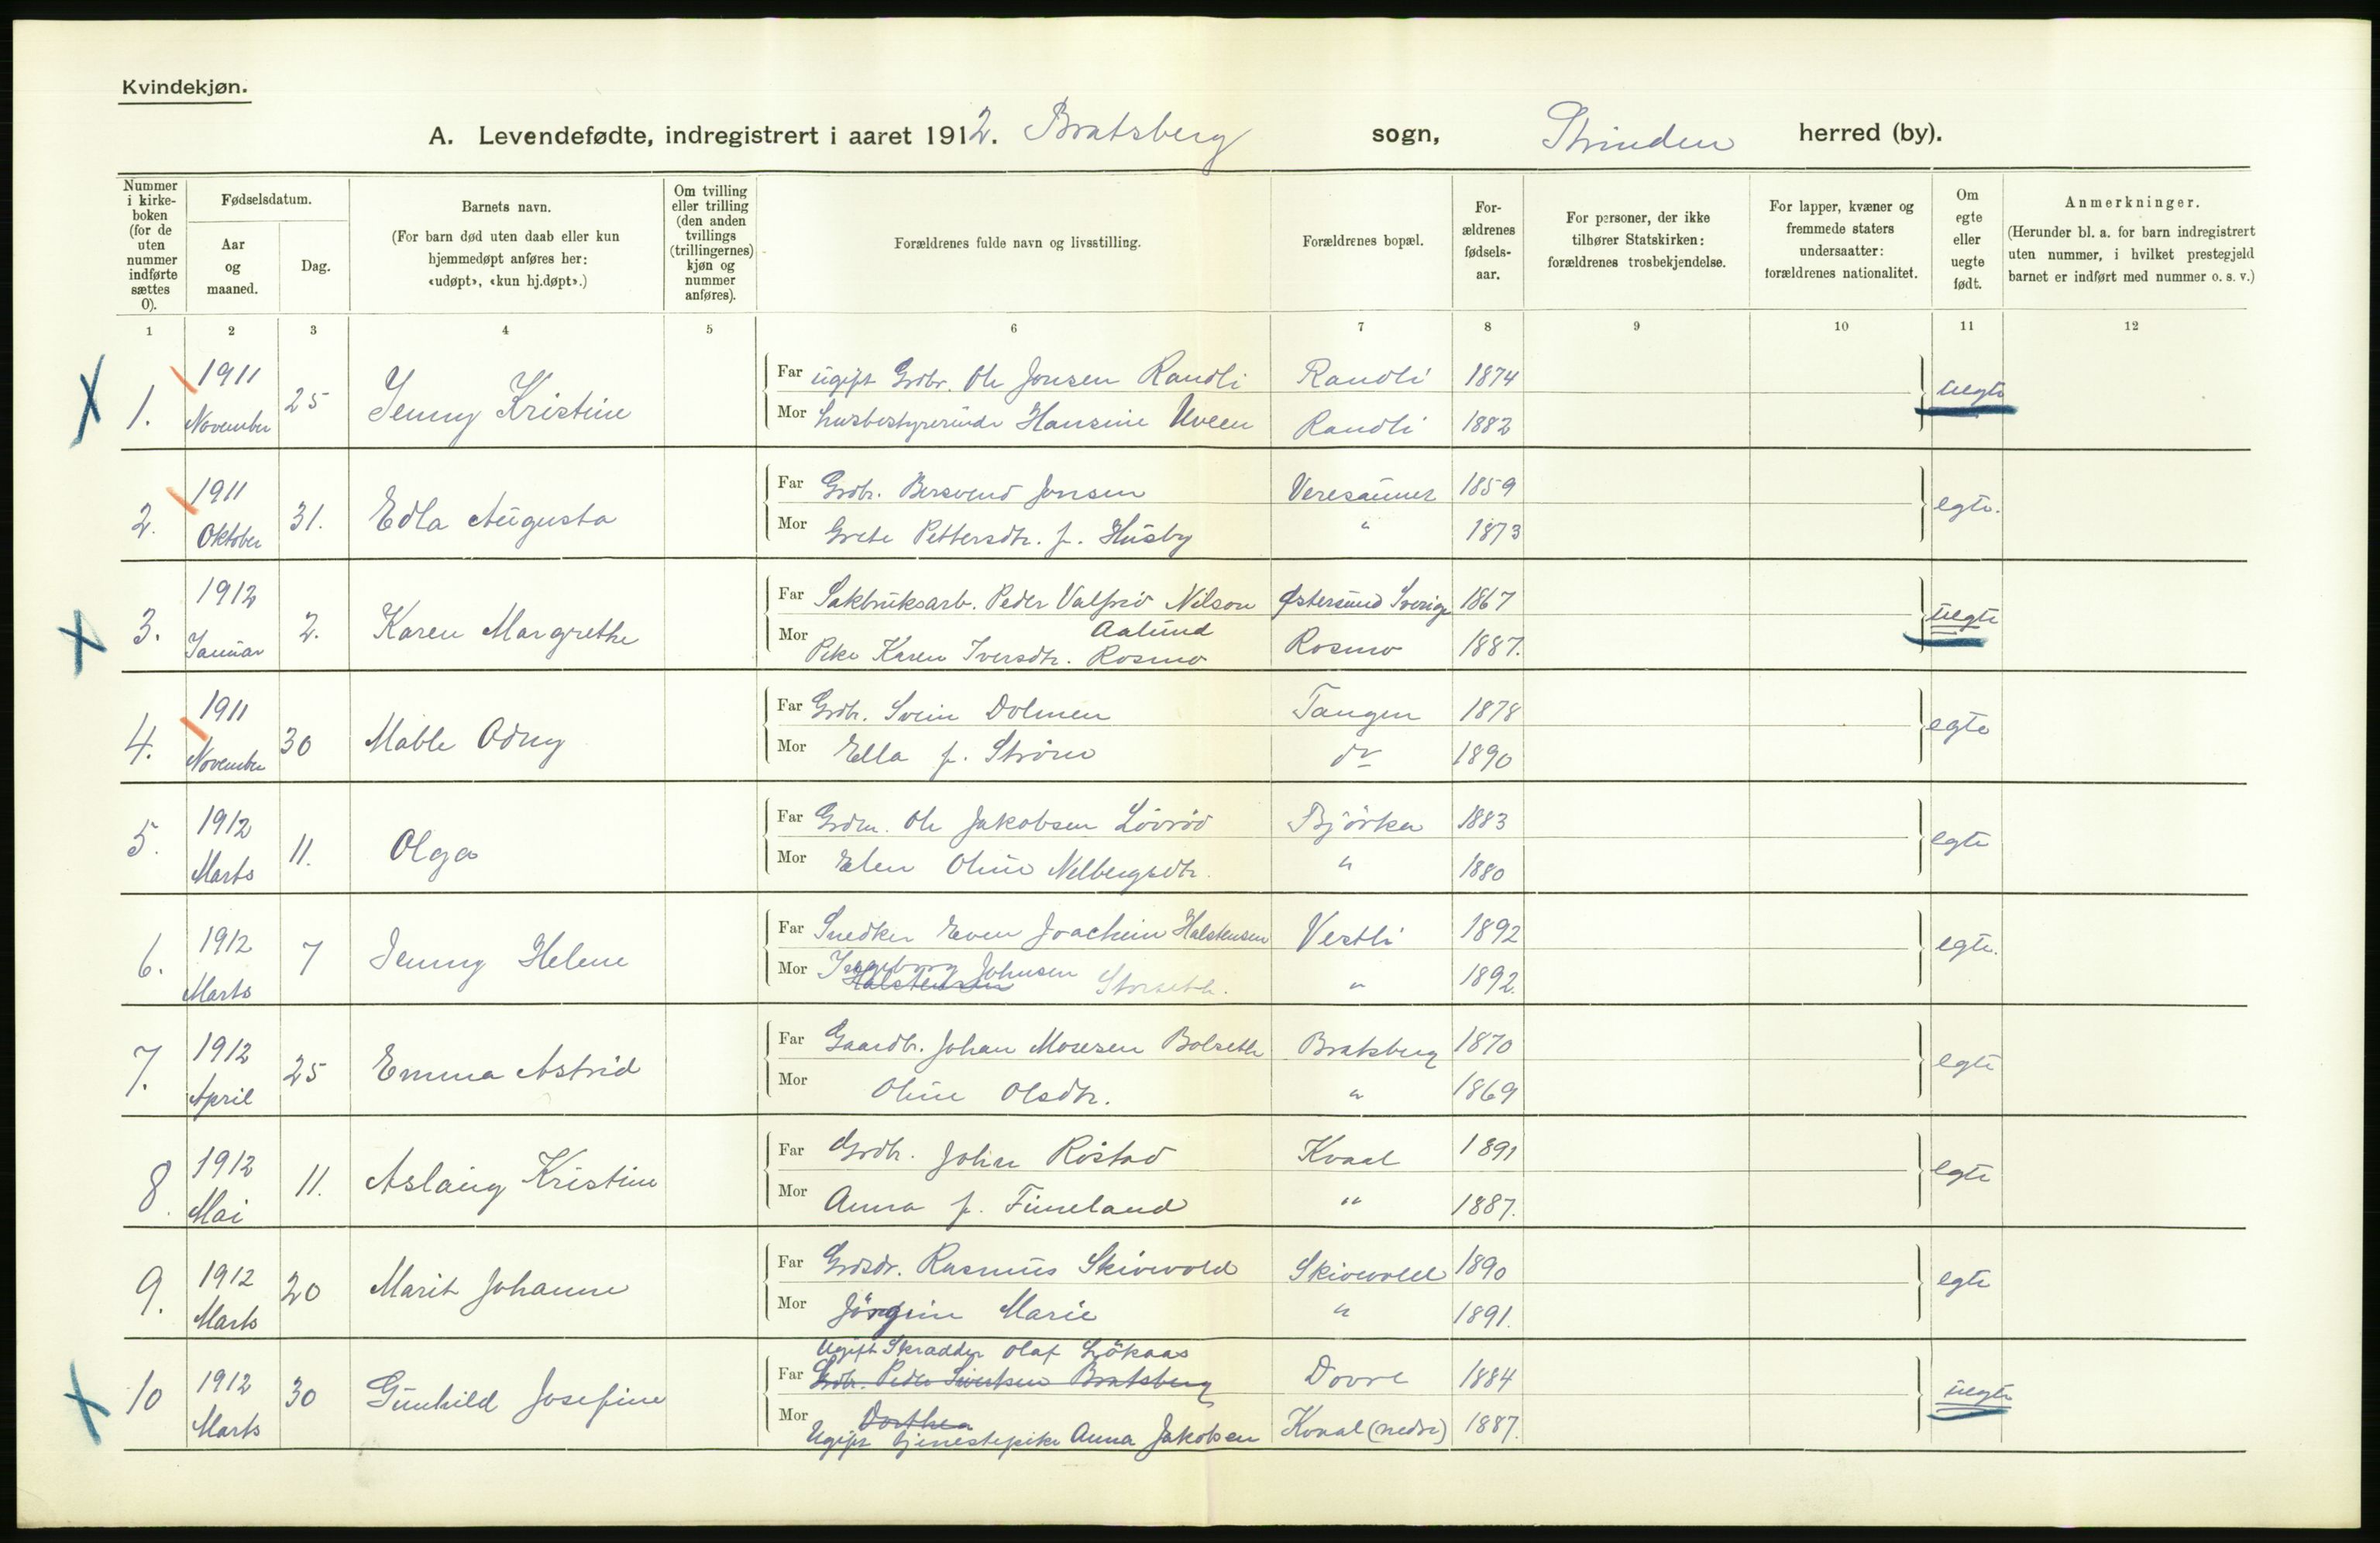 Kvindekjøn.
A. Levendefødte, indregistrert i aaret 1912. Bratsberg sogn, Strinden herred (by).
Nummer i kirkeboken (for de uten nummer indførte sættes 0).
Fødselsdatum.
Aar og maaned.
Dag.
Barnets navn.
(For barn død uten daab eller kun hjemmedøpt anføres her: «udøpt», «kun hj.døpt».)
Om tvilling eller trilling (den anden tvillings (trillingernes) kjøn og nummer anføres).
Forældrenes fulde navn og livsstilling.
Forældrenes bopæl.
Forældrenes fødselsaar.
For personer, der ikke tilhører Statskirken: forældrenes trosbekjendelse.
For lapper, kvæner og fremmede staters undersaatter: forældrenes nationalitet.
Om egte eller uegte født.
Anmerkninger.
(Herunder bl. a. for barn indregistrert uten nummer, i hvilket prestegjeld barnet er indført med nummer o. s. v.)
1 2 3 4 5 6 7 8 9 10 11 12
1. 1911 November 25 Jenny Kristine
Far ugift Grdbr. Ole Jonsen Randli Randli 1874 uegte
Mor husbestyrerinde Hansine Uveen Randli 1882
2. 1911 Oktober 31. Edla Augusta
Far Grdbr. Bersvend Jonsen Veresaunet 1859 egte.
Mor Grete Pettersdtr. f. Husby " 1873
3. 1912 Januar 2. Karen Margrethe
Far Sakbruksarb. Peder Valfrid Nilson Aalund Østersund Sverige 1867 uegte
Mor Pike Karen Iversdtr. Rosmo Rosmo 1887.
4. 1911 November 30 Mable Odny
Far Grdbr. Svein Dolmen Tangen 1878 egte
Mor Ella f. Strøm do 1890
5. 1912 Marts 11. Olga
Far Grdm. Ole Jakobsen Lövröd Björka 1883 egte
Mor Elen Oline Nelbergsdtr. " 1880
6. 1912 Marts 7 Jenny Helene
Far Snedker Even Joachim Halstensen Vestli 1892 egte.
Mor Ingeborg Johnsen Halstensen Storseth. " 1892.
7. 1912 April 25 Emma Astrid
Far Gaardbr. Johan Mosesen Bolseth Bratsberg 1870 egte
Mor Oline Olsdtr. " 1869
8. 1912 Mai 11. Aslaug Kristine
Far Grdbr. Johan Röstad Kvaal 1891 egte
Mor Anna f. Fineland " 1887.
9. 1912 Marts 20 Marit Johanne
Far Rasmus Skivevold Skivevold 1890 egte
Mor Jörgine Marie " 1891.
10 1912 Marts 30 Gunhild Josefine
Ugift Skradder Olaf Lökaas
Far Grdbr. Peder Sivertsen Bratsberg Dovre 1884 uegte
Mor Dorthea
Ugift tjenestepike Anna Jakobsen Kvaal (nedre) 1887.